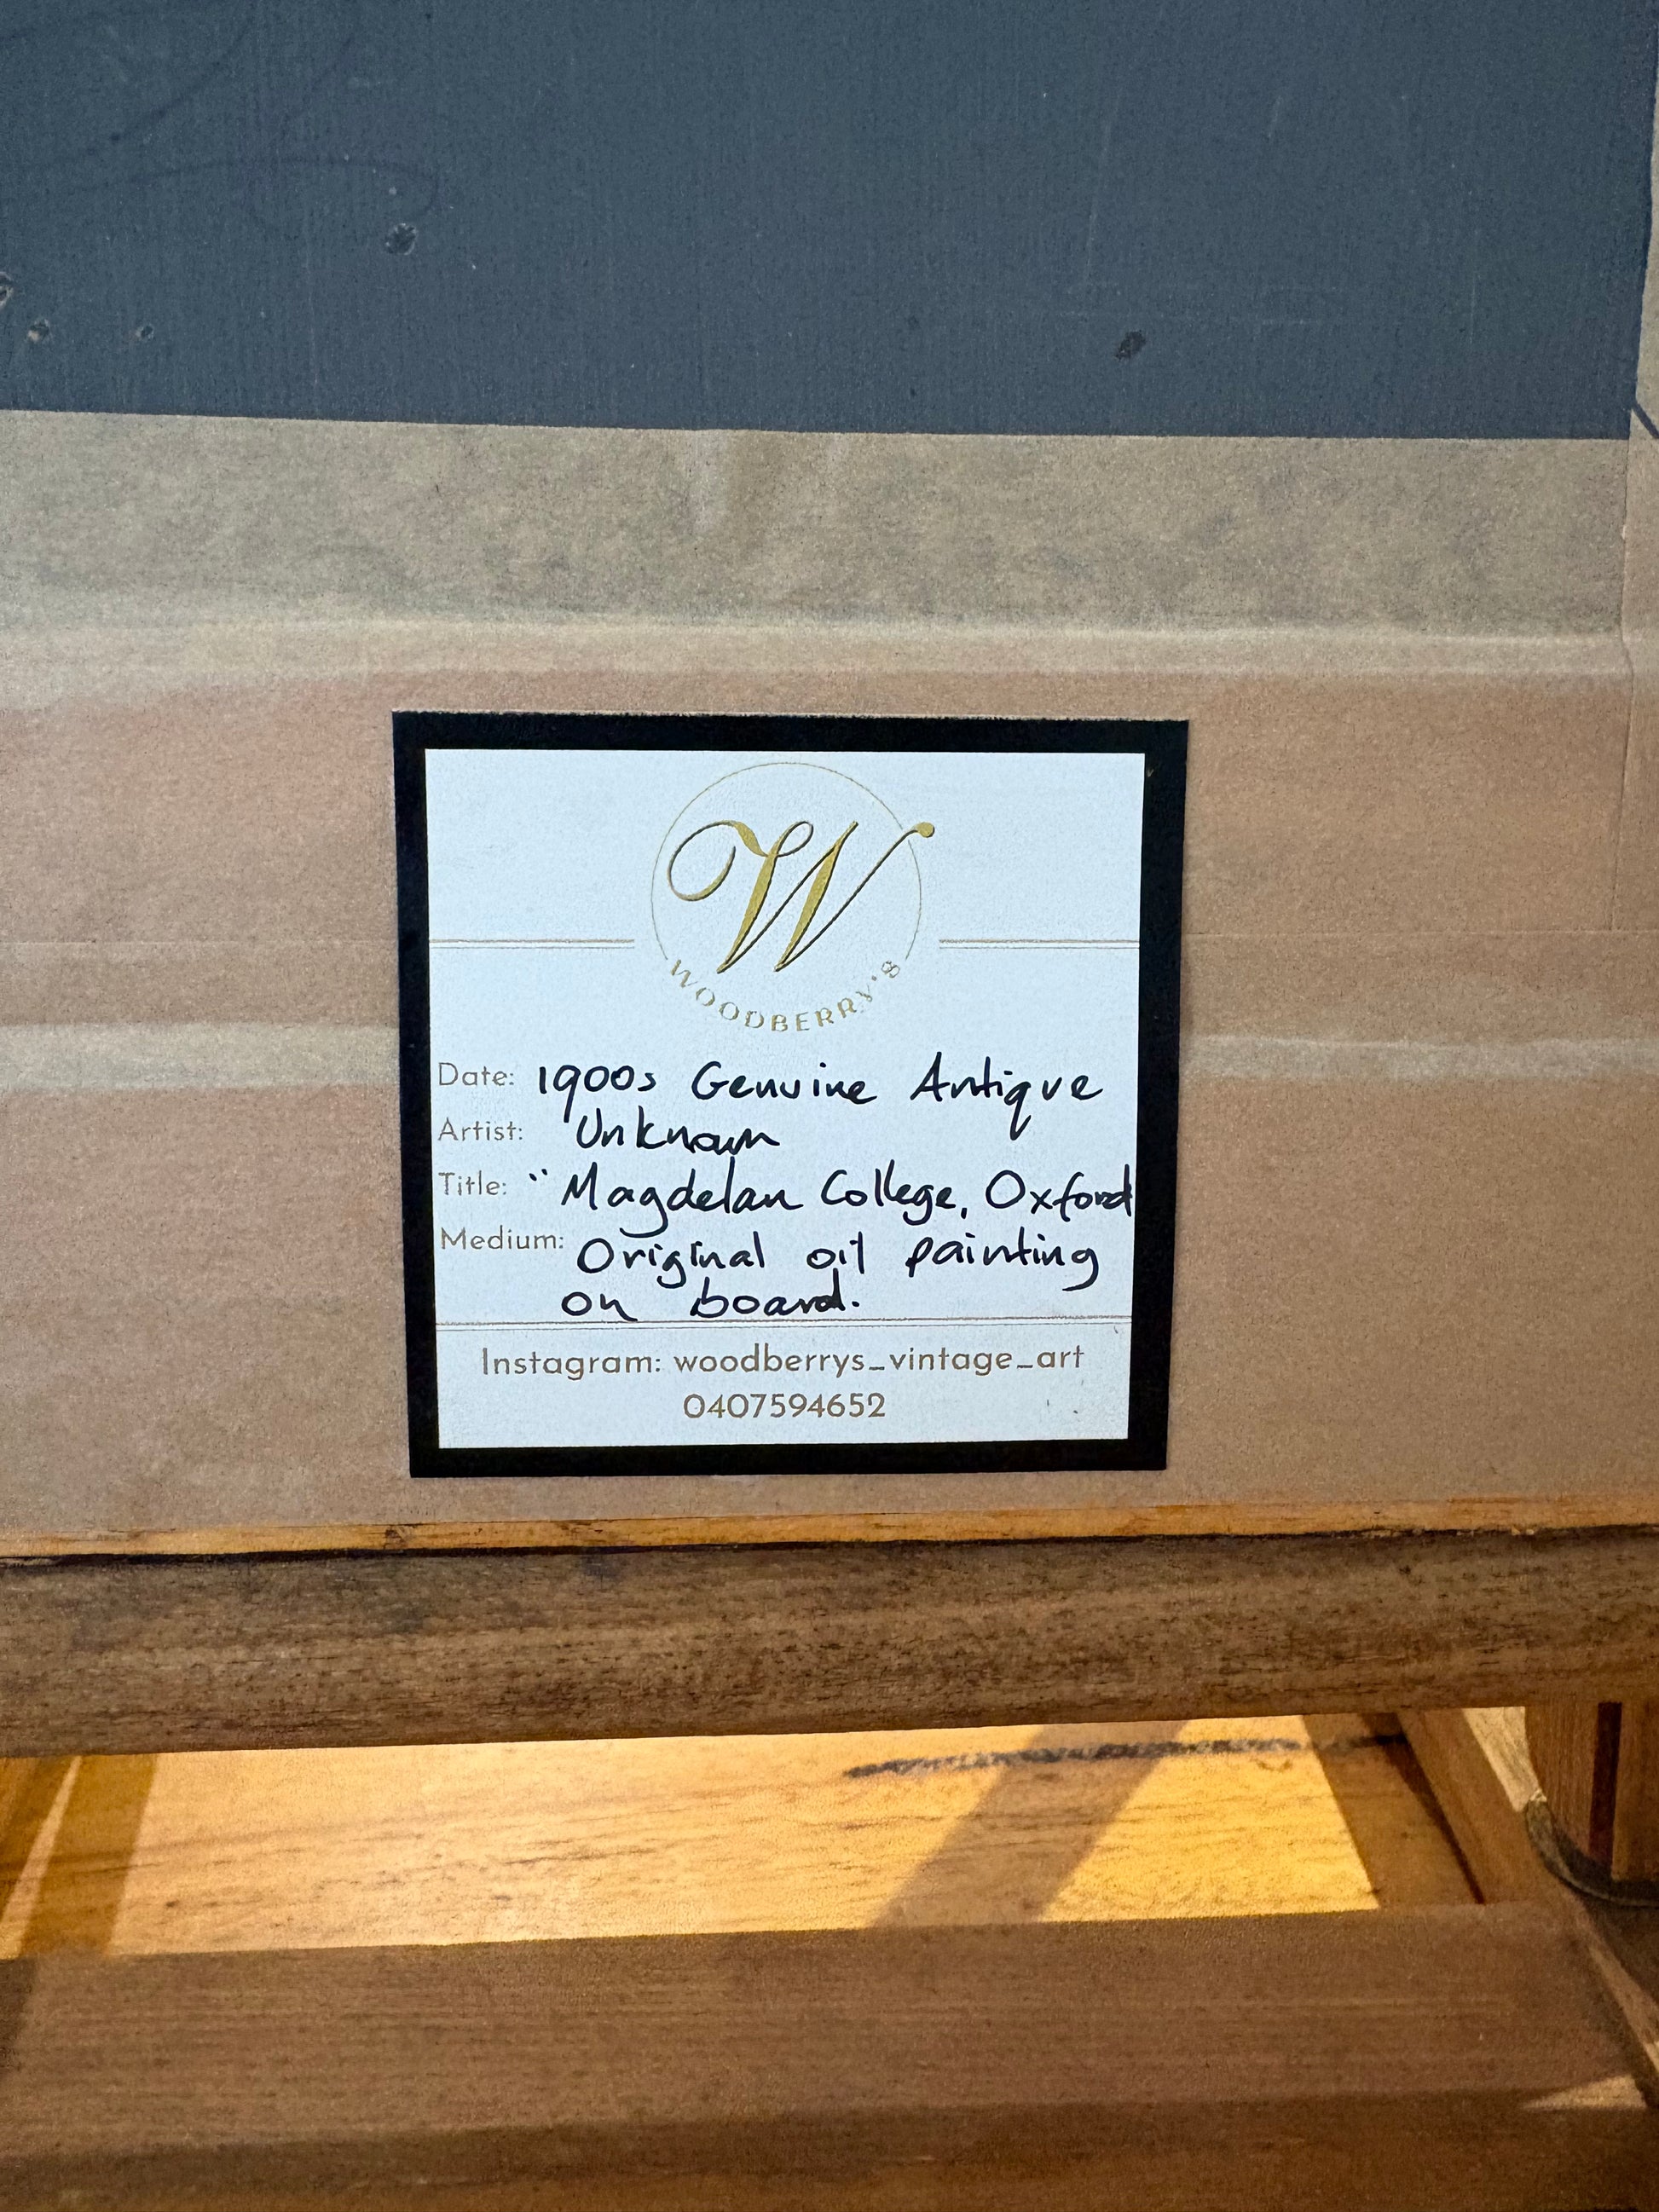 W
WOODBERRY'S
Date: 1900s Genuine Antique
Artist: Unknown
Title: "Magdelan College, Oxford
Medium: Original oil painting
on board.
Instagram: woodberrys_vintage_art
0407594652